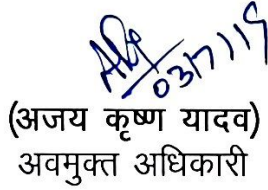 03/7/19
(अजय कृष्ण यादव)
अवमुक्त अधिकारी